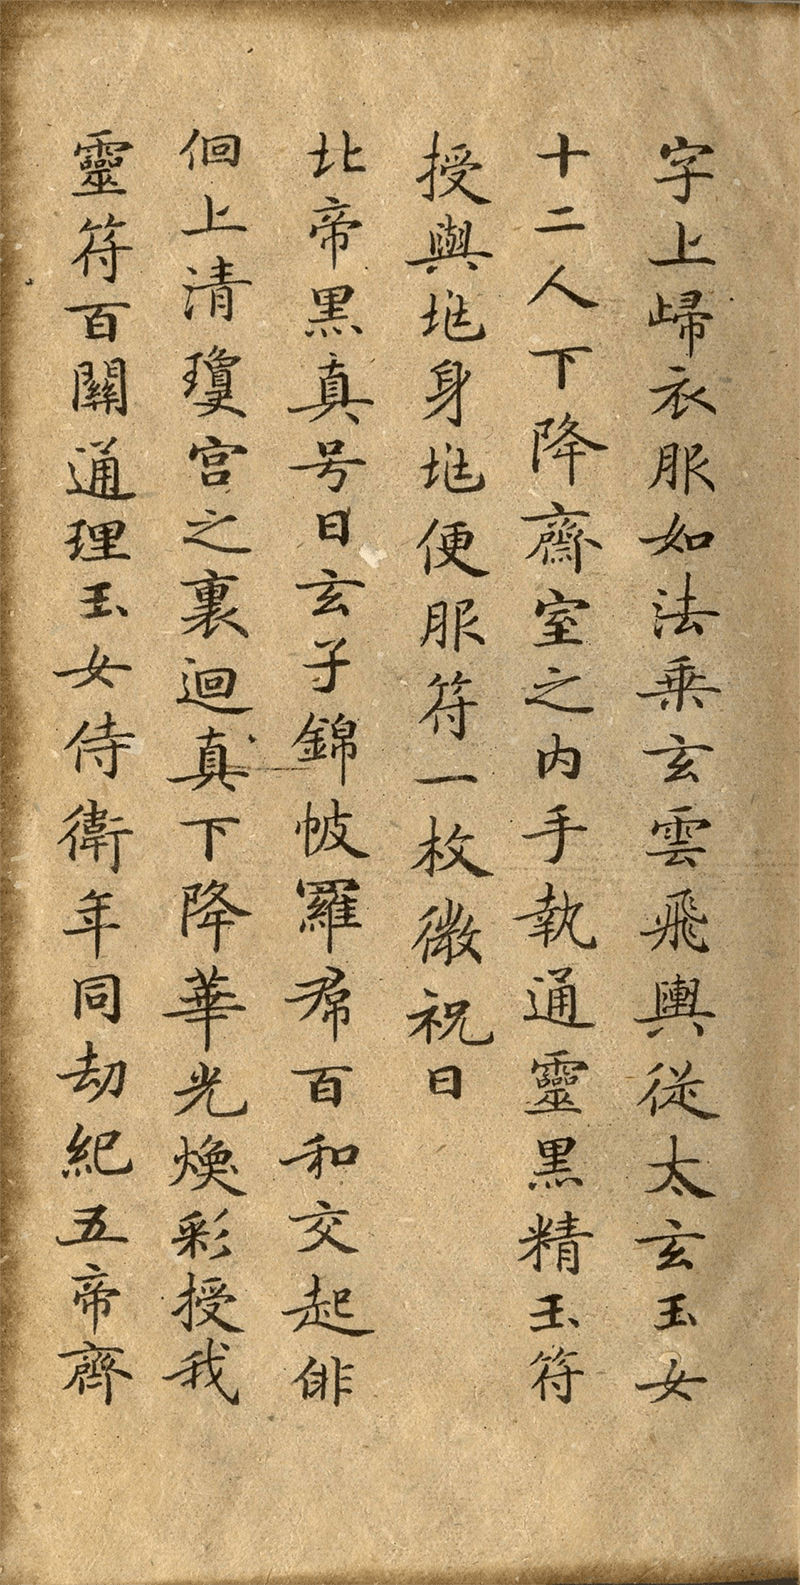 字上歸衣服如法乗玄雲飛輿從太玄玉女
十二人下降齋室之内手執通靈黒精玉符
授與兆身兆便服符一枚微祝曰
北帝黒真号曰玄子錦帔羅帬百和交起俳
佪上清瓊宫之裏迴真下降華光煥彩授我
靈符百關通理玉女侍衛年同劫紀五帝齊